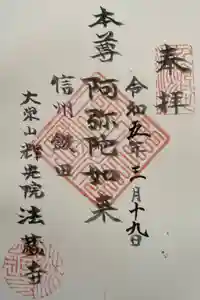 奉拝
令和五年三月十九日
本尊 阿弥陀如来
信州飯田
大栄山
法蔵寺